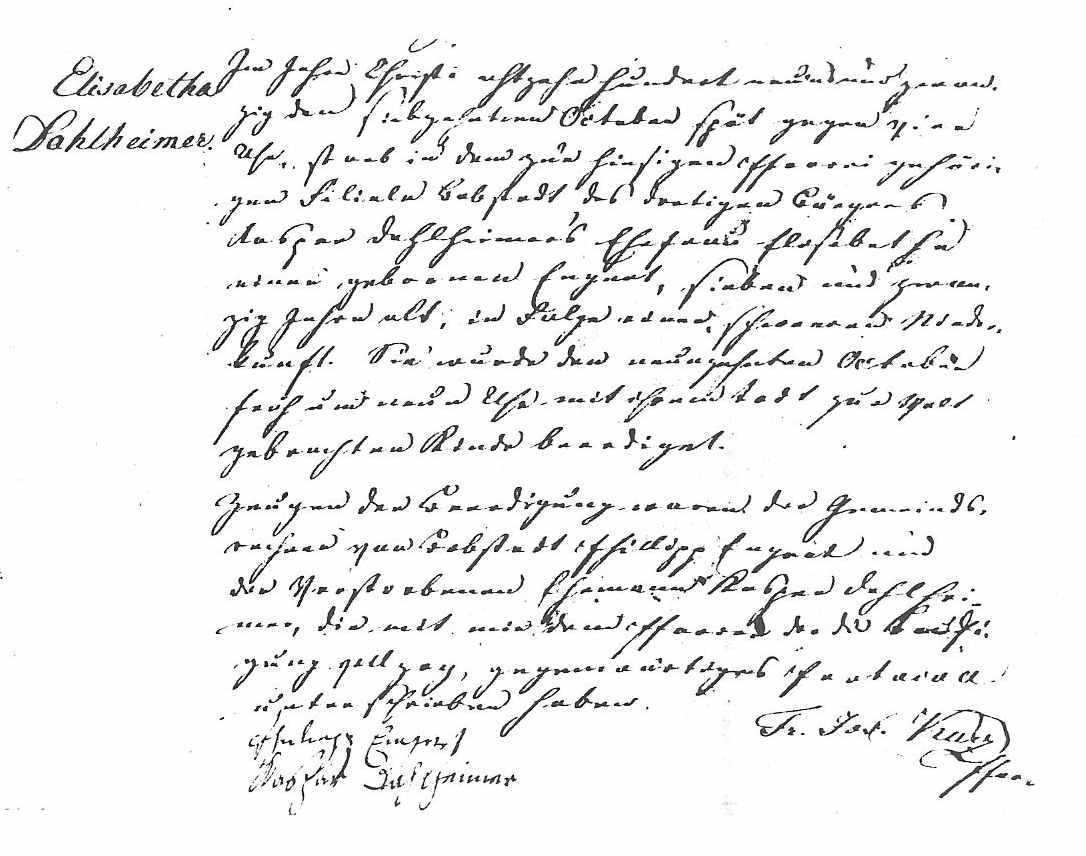 Elisabetha
Dahlheimer.
Im Jahre Christi achtzehn hundert neun und zwan-
zig den siebzehnten October spät gegen vier
Uhr, starb in dem zur hiesigen Pfarrei gehöri-
gen Filiale Bobstadt des dortigen Bürgers
Kaspar Dahlheimer's Ehefrau Elisabetha
einer gebornen Engert, sieben und zwan-
zig Jahre alt, in Folge einer schweren Nieder-
kunft. Sie wurde den neunzehnten October
früh um neun Uhr mit ihrem todt zur Welt
gebrachten Kinde beerdiget.
Zeugen der Beerdigung waren der Gemeinds-
rechner von Bobstadt Philipp Engert und
der Verstorbenen Ehemann Kaspar Dahlhei-
mer, die mit mir dem Pfarrer der die Beerdi-
gung vollzog, gegenwärtiges Protocoll
unterschrieben haben.
Philipp Engert
Kaspar Dahlheimer
Fr. Jos.
Pfarr.